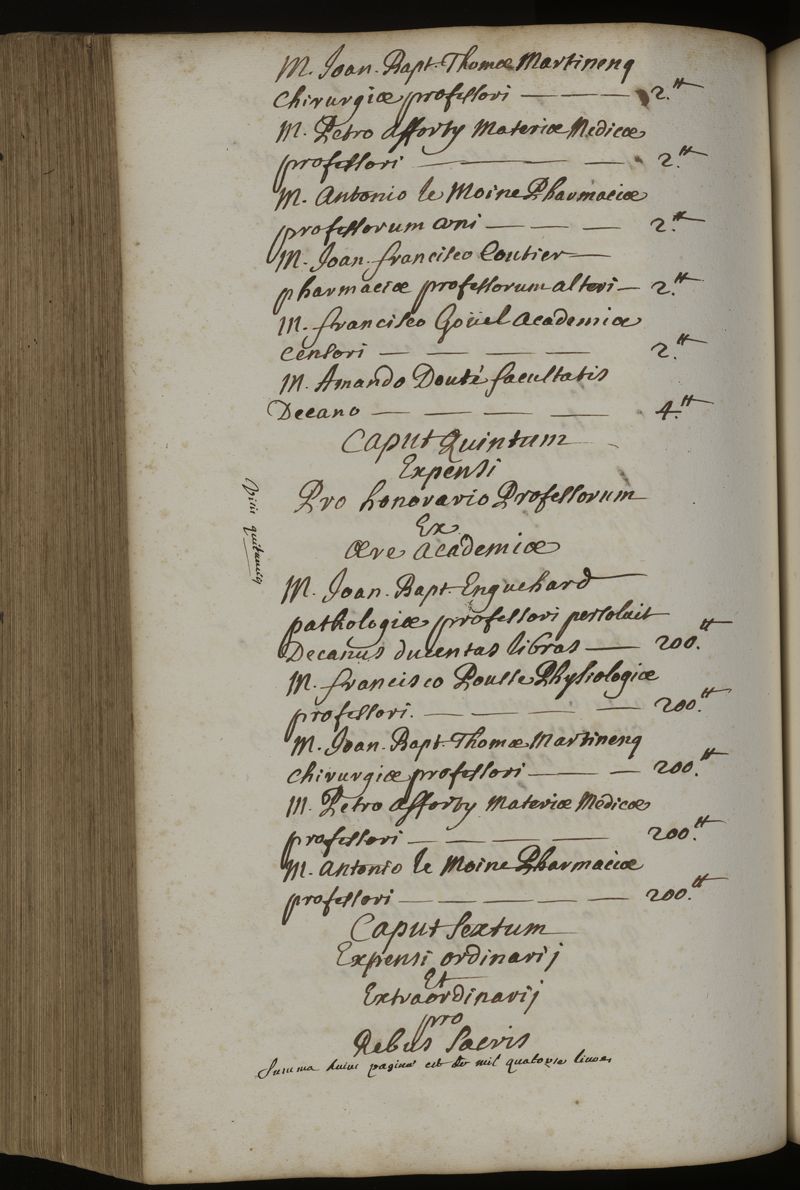 M. Joan. Bapt. Thomæ Martinenq
Chirurgiæ professori — — — 2.tt
M. Petro afforty Materiæ Medicæ
professori — — 2.tt
M. Antonio le Moine Pharmaciæ
professorum uni — — — 2.tt
M. Joan. francisco Coutier —
pharmaciæ professorum alteri — 2.tt
M. francisco Goüel academiæ
Censori — — — — 2.tt
M. Amando Douté facultatis
Decano — — — — 4.tt
Caput Quintum
Expensi
Pro honorario Professorum
Ex
ære academiæ
M. Joan. Bapt. Enguehard
pathologiæ professori persoluit
Decanus ducentas libras — 200.tt
M. francisco Pousse Physiologiæ
professori. — — — — 200.tt
M. Joan. Bapt. Thomæ Martinenq
Chirurgiæ professori — — 200.tt
M. Petro afforty Materiæ Medicæ
professori — — — — 200.tt
M. Antonio le Moine Pharmaciæ
professori — — — — — 200.tt
Caput Sextum
Expensi ordinarij
Et
Extraordinarij
pro
Rebus Sacris
Summa huius paginæ est de mil quatorse liures